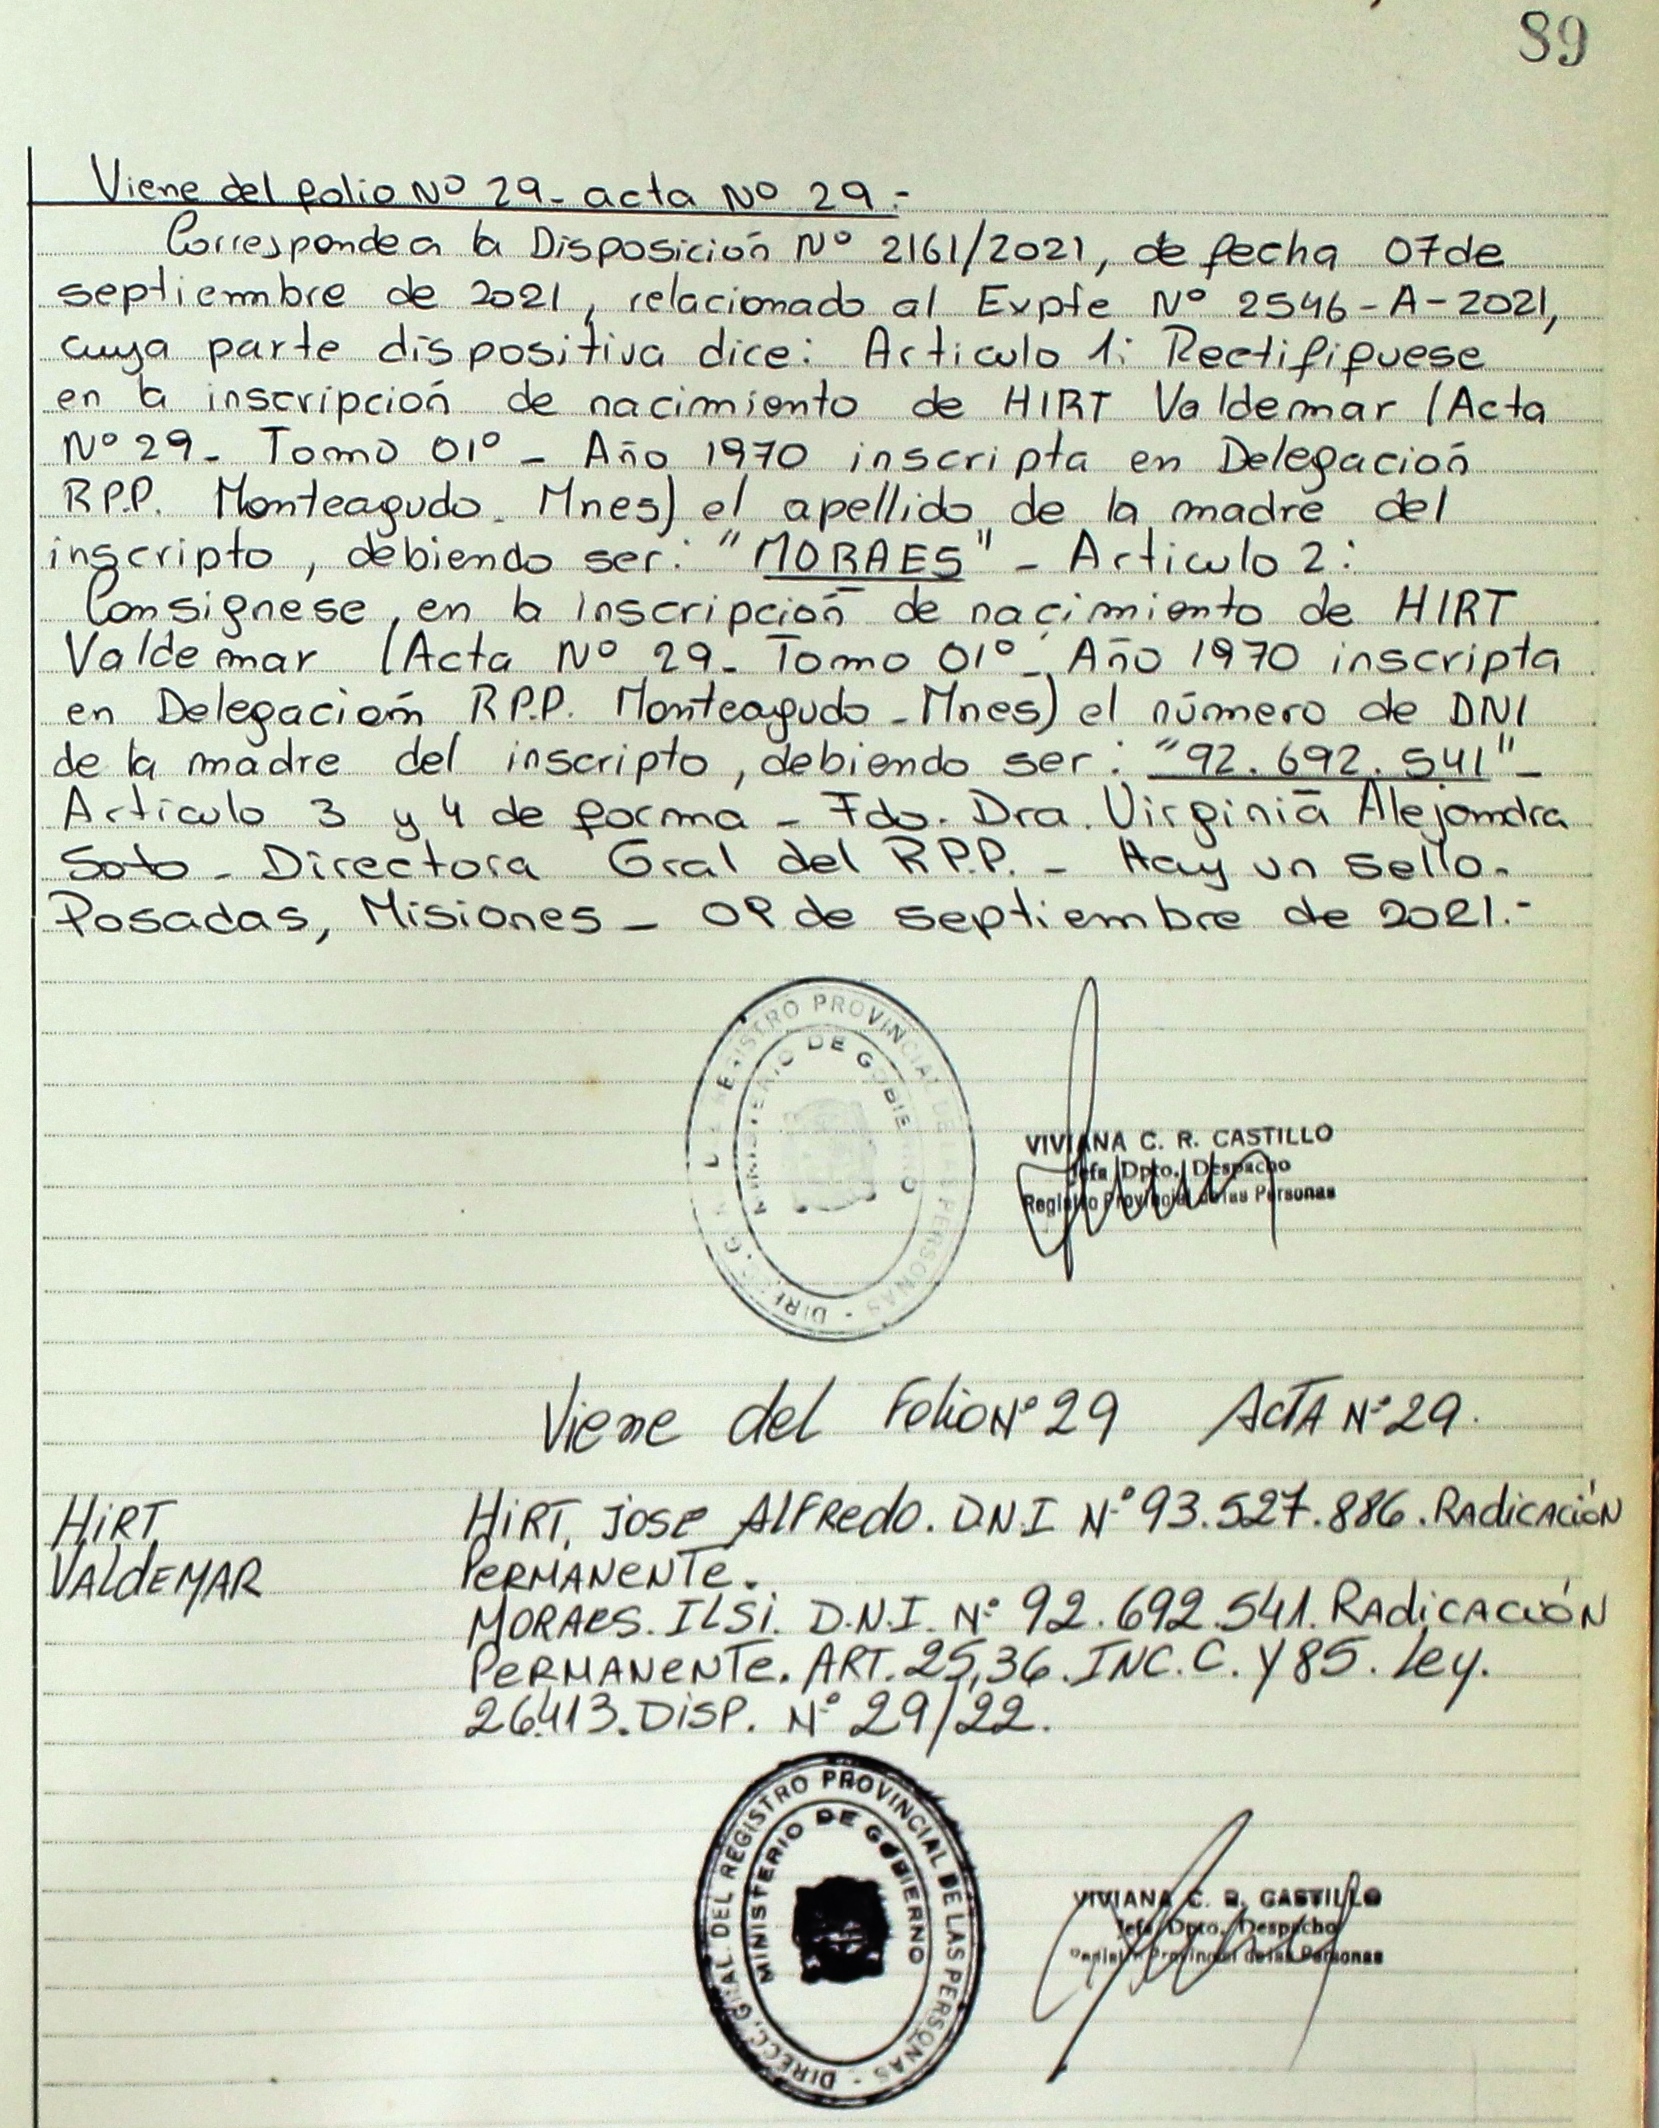 89
Viene del folio Nº 29- acta Nº 29.-
Corresponde a la Disposición Nº 2161/2021, de fecha 07 de
septiembre de 2021, relacionado al Expte Nº 2546-A-2021,
cuya parte dispositiva dice: Articulo 1: Rectifiquese
en la inscripción de nacimiento de HIRT Valdemar (Acta
Nº 29- Tomo 01º - Año 1970 inscripta en Delegación
R.P.P. Monteagudo- Mnes) el apellido de la madre del
inscripto, debiendo ser: "MORAES" - Articulo 2:
Consignese, en la inscripción de nacimiento de HIRT
Valdemar (Acta Nº 29- Tomo 01º- Año 1970 inscripta
en Delegación R.P.P. Monteagudo-Mnes) el número de DNI
de la madre del inscripto, debiendo ser: "92.692.541"-
Articulo 3 y 4 de forma - Fdo. Dra. Virginia Alejandra
Soto - Directora Gral del R.P.P. - Hay un sello.
Posadas, Misiones - 09 de septiembre de 2021.-
DIRECC. GRAL. DEL REGISTRO PROVINCIAL DE LAS PERSONAS -
MINISTERIO DE GOBIERNO
VIVIANA C. R. CASTILLO
Jefa Dpto. Despacho
Registro Provincial de las Personas
Viene del Folio Nº 29 ACTA Nº 29.
HIRT, JOSE ALFREDO. D.N.I Nº 93.527.886. RADICACIÓN
HIRT,
VALDEMAR
PERMANENTE.
MORAES. ILSI. D.N.I. Nº 92.692.541. RADICACIÓN
PERMANENTE. ART. 25,36. INC. C. Y 85. Ley.
26413. DISP. Nº 29/22.
DIRECC. GRAL. DEL REGISTRO PROVINCIAL DE LAS PERSONAS -
MINISTERIO DE GOBIERNO
VIVIANA C. R. CASTILLO
Jefa Dpto. Despacho
Registro Provincial de las Personas